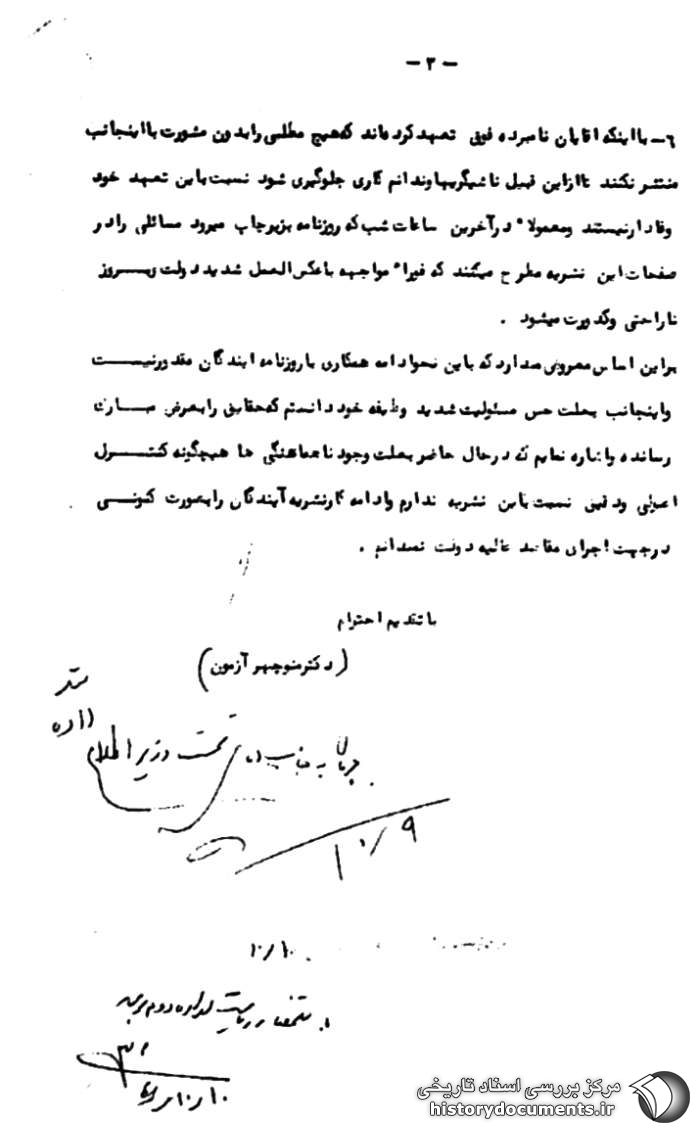 - ۳ -
٦- با اینکه اقایان نامبرده فوق تعهد کرده‌اند که هیچ مطلبی را بدون مشورت با اینجانب
منتشر نکنند تا از این قبیل ناشیگریها و ندانم کاری جلوگیری شود نسبت باین تعهد خود
وفادار نیستند و معمولاً در آخرین ساعات شب که روزنامه بزیر چاپ میرود مسائلی را در
صفحات این نشریه مطرح میکنند که فوراً مواجهه با عکس‌العمل شدید دولت و بروز
ناراحتی و کدورت میشود .
براین اساس معروض میدارد که با این نحو ادامه همکاری با روزنامه ایندگان مقدور نیست
و اینجانب بعلت حس مسئولیت شدید وظیفه خود دانستم که حقایق را بعرض مبارک
رسانده و اشاره نمایم که در حال حاضر بعلت وجود ناهماهنگی ها هیچگونه کنترل
اصولی و دقیق نسبت باین نشریه ندارم و ادامه کار نشریه آیندگان را بصورت کنونی
در جهت اجرای مقاصد عالیه دولت نمیدانم .
با تقدیم احترام
(دکتر منوچهر آزمون)
وزیر اطلاعات
داده
۱۰/۹
۱۰/۱۰
مرکز بررسی اسناد تاریخی
historydocuments.ir